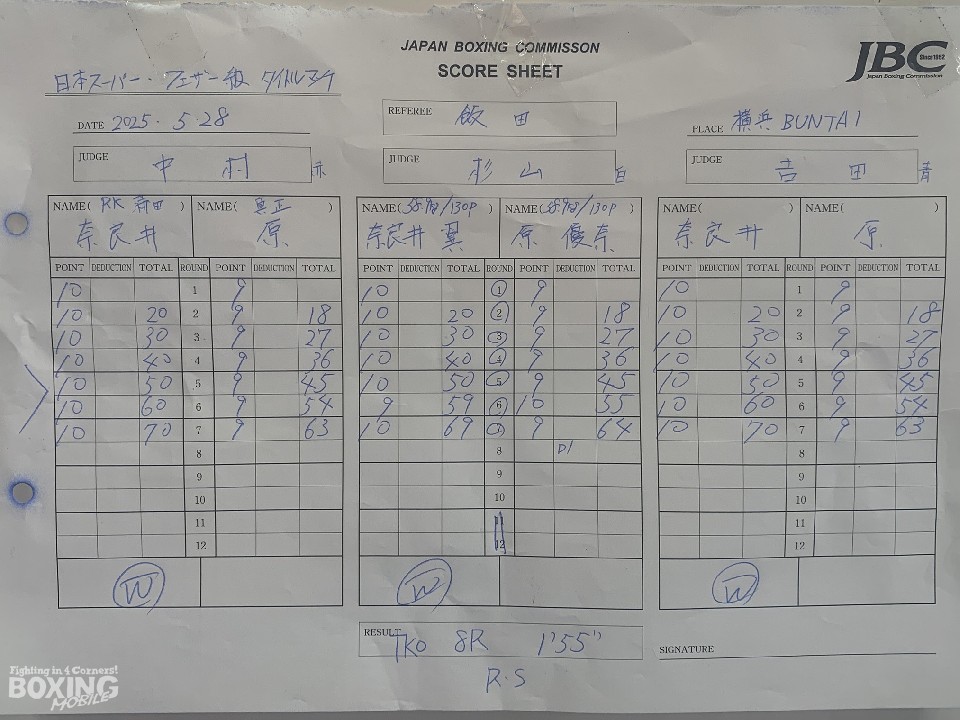 JAPAN BOXING COMMISSON
SCORE SHEET
JBC Since1952
Japan Boxing Commission
日本スーパー・フェザー級 タイトルマッチ
DATE 2025.5.28
REFEREE 飯田
PLACE 横浜 BUNTAI
JUDGE 中村 赤
JUDGE 杉山 白
JUDGE 吉田 青
NAME( RK蒲田 ) NAME( 真正 ) NAME( 58.9㎏/130P ) NAME( 58.9㎏/130P ) NAME( ) NAME( )
奈良井 原 奈良井 翼 原 優奈 奈良井 原
POINT DEDUCTION TOTAL ROUND POINT DEDUCTION TOTAL POINT DEDUCTION TOTAL ROUND POINT DEDUCTION TOTAL POINT DEDUCTION TOTAL ROUND POINT DEDUCTION TOTAL
10 1 9 10 1 9 10 1 9
10 20 2 9 18 10 20 2 9 18 10 20 2 9 18
10 30 3 9 27 10 30 3 9 27 10 30 3 9 27
10 40 4 9 36 10 40 4 9 36 10 40 4 9 36
10 50 5 9 45 10 50 5 9 45 10 50 5 9 45
10 60 6 9 54 9 59 6 10 55 10 60 6 9 54
10 70 7 9 63 10 69 7 9 64 10 70 7 9 63
8 8 D1 8
9 9 9
10 10 10
11 11 11
12 12 12
W W W
RESULT TKO 8R 1'55"
R.S
SIGNATURE
Fighting in 4 Corners!
BOXING
MOBILE